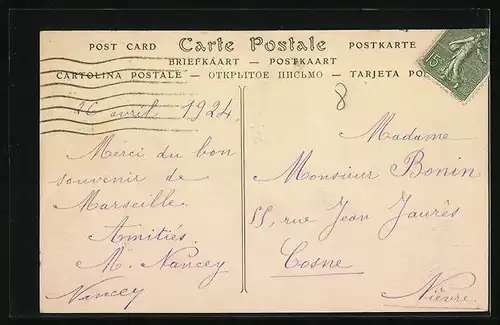 POST CARD Carte Postale POSTKARTE
BRIEFKAART — POSTKAART
CARTOLINA POSTALE — ОТКРЫТОЕ ПИСЬМО — TARJETA PO
15c
8
26 avril 1924.
Merci du bon
souvenir de
Marseille.
Amitiés.
M. Nancey
Nancey
Madame
Monsieur Bonin
55, rue Jean Jaurès
Cosne
Nièvre